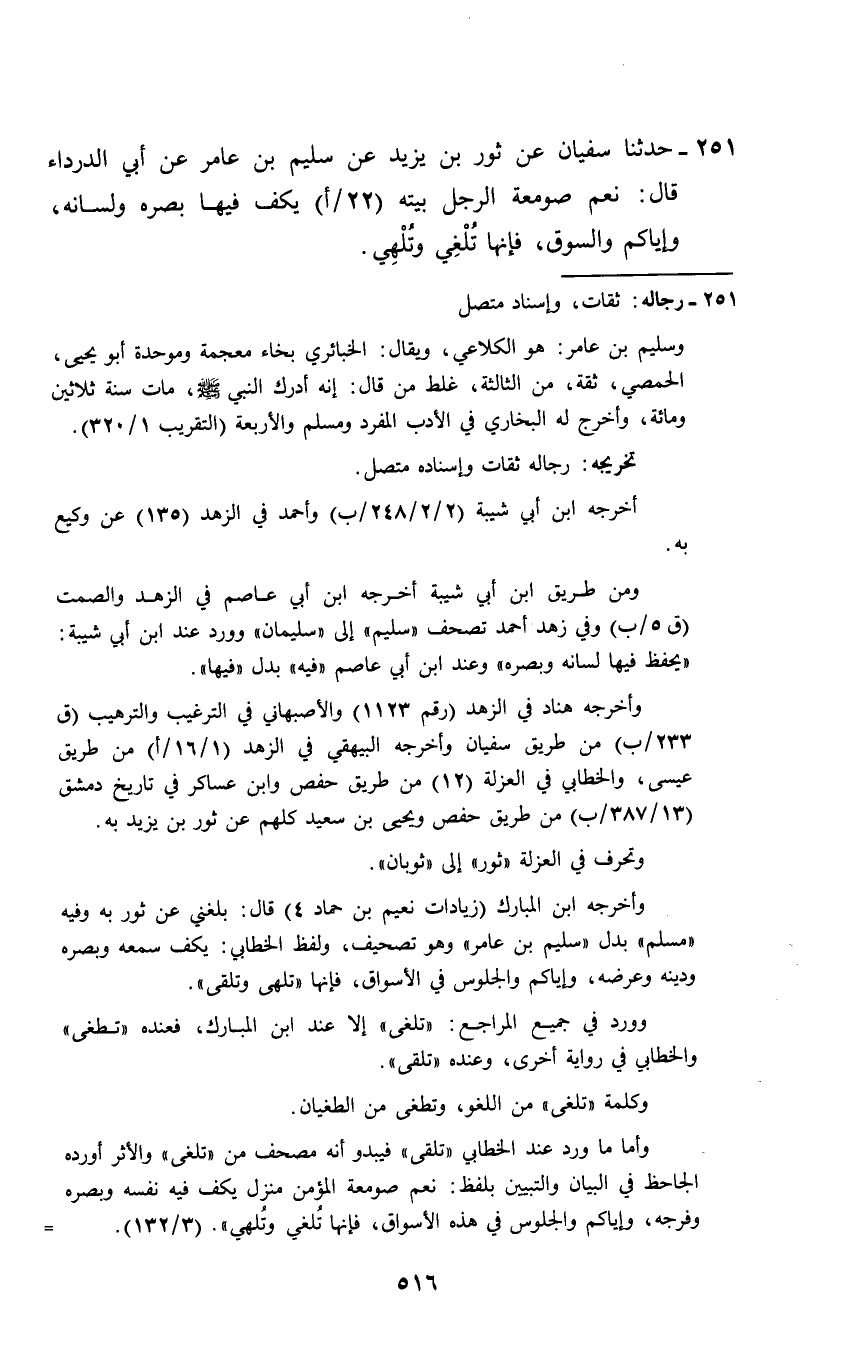 ٢٥١ ـ حدثنا سفيان عن ثور بن يزيد عن سليم بن عامر عن أبي الدرداء
قال: نعم صومعة الرجل بيته (٢٢/أ) يكف فيهـا بصره ولسـانه،
وإياكم والسوق، فإنها تُلْغِي وتُلْهِي.
٢٥١ ـ رجاله: ثقات، وإسناد متصل
وسليم بن عامر: هو الكلاعي، ويقال: الخبائري بخاء معجمة وموحدة أبو يحيى،
الحمصي، ثقة، من الثالثة، غلط من قال: إنه أدرك النبي ﷺ، مات سنة ثلاثين
ومائة، وأخرج له البخاري في الأدب المفرد ومسلم والأربعة (التقريب ١/٣٢٠).
تخريجه: رجاله ثقات وإسناده متصل.
أخرجه ابن أبي شيبة (٢/٢/٢٤٨/ب) وأحمد في الزهد (١٣٥) عن وكيع
به.
ومن طـريق ابن أبي شيبة أخـرجه ابن أبي عـاصم في الزهـد والصمت
(ق ٥/ب) وفي زهد أحمد تصحف «سليم» إلى «سليمان» وورد عند ابن أبي شيبة:
«يحفظ فيها لسانه وبصره» وعند ابن أبي عاصم «فيه» بدل «فيها».
وأخرجه هناد في الزهد (رقم ١١٢٣) والأصبهاني في الترغيب والترهيب (ق
٢٣٣/ب) من طريق سفيان وأخرجه البيهقي في الزهد (١/١٦/أ) من طريق
عيسى، والخطابي في العزلة (١٢) من طريق حفص وابن عساكر في تاريخ دمشق
(١٣/٣٨٧/ب) من طريق حفص ويحيى بن سعيد كلهم عن ثور بن يزيد به.
وتحرف في العزلة «ثور» إلى «ثوبان».
وأخرجه ابن المبارك (زيادات نعيم بن حماد ٤) قال: بلغني عن ثور به وفيه
«مسلم» بدل «سليم بن عامر» وهو تصحيف، ولفظ الخطابي: يكف سمعه وبصره
ودينه وعرضه، وإياكم والجلوس في الأسواق، فإنها «تلهى وتلقى».
وورد في جميـع المراجـع: «تلغى» إلا عند ابن المبـارك، فعنده «تـطغى»
والخطابي في رواية أخرى، وعنده «تلقى».
وكلمة «تلغى» من اللغو، وتطغى من الطغيان.
وأما ما ورد عند الخطابي «تلقى» فيبدو أنه مصحف من «تلغى» والأثر أورده
الجاحظ في البيان والتبيين بلفظ: نعم صومعة المؤمن منزل يكف فيه نفسه وبصره
وفرجه، وإياكم والجلوس في هذه الأسواق، فإنها تُلغي وتُلهي». (٣/١٣٢). =
٥١٦